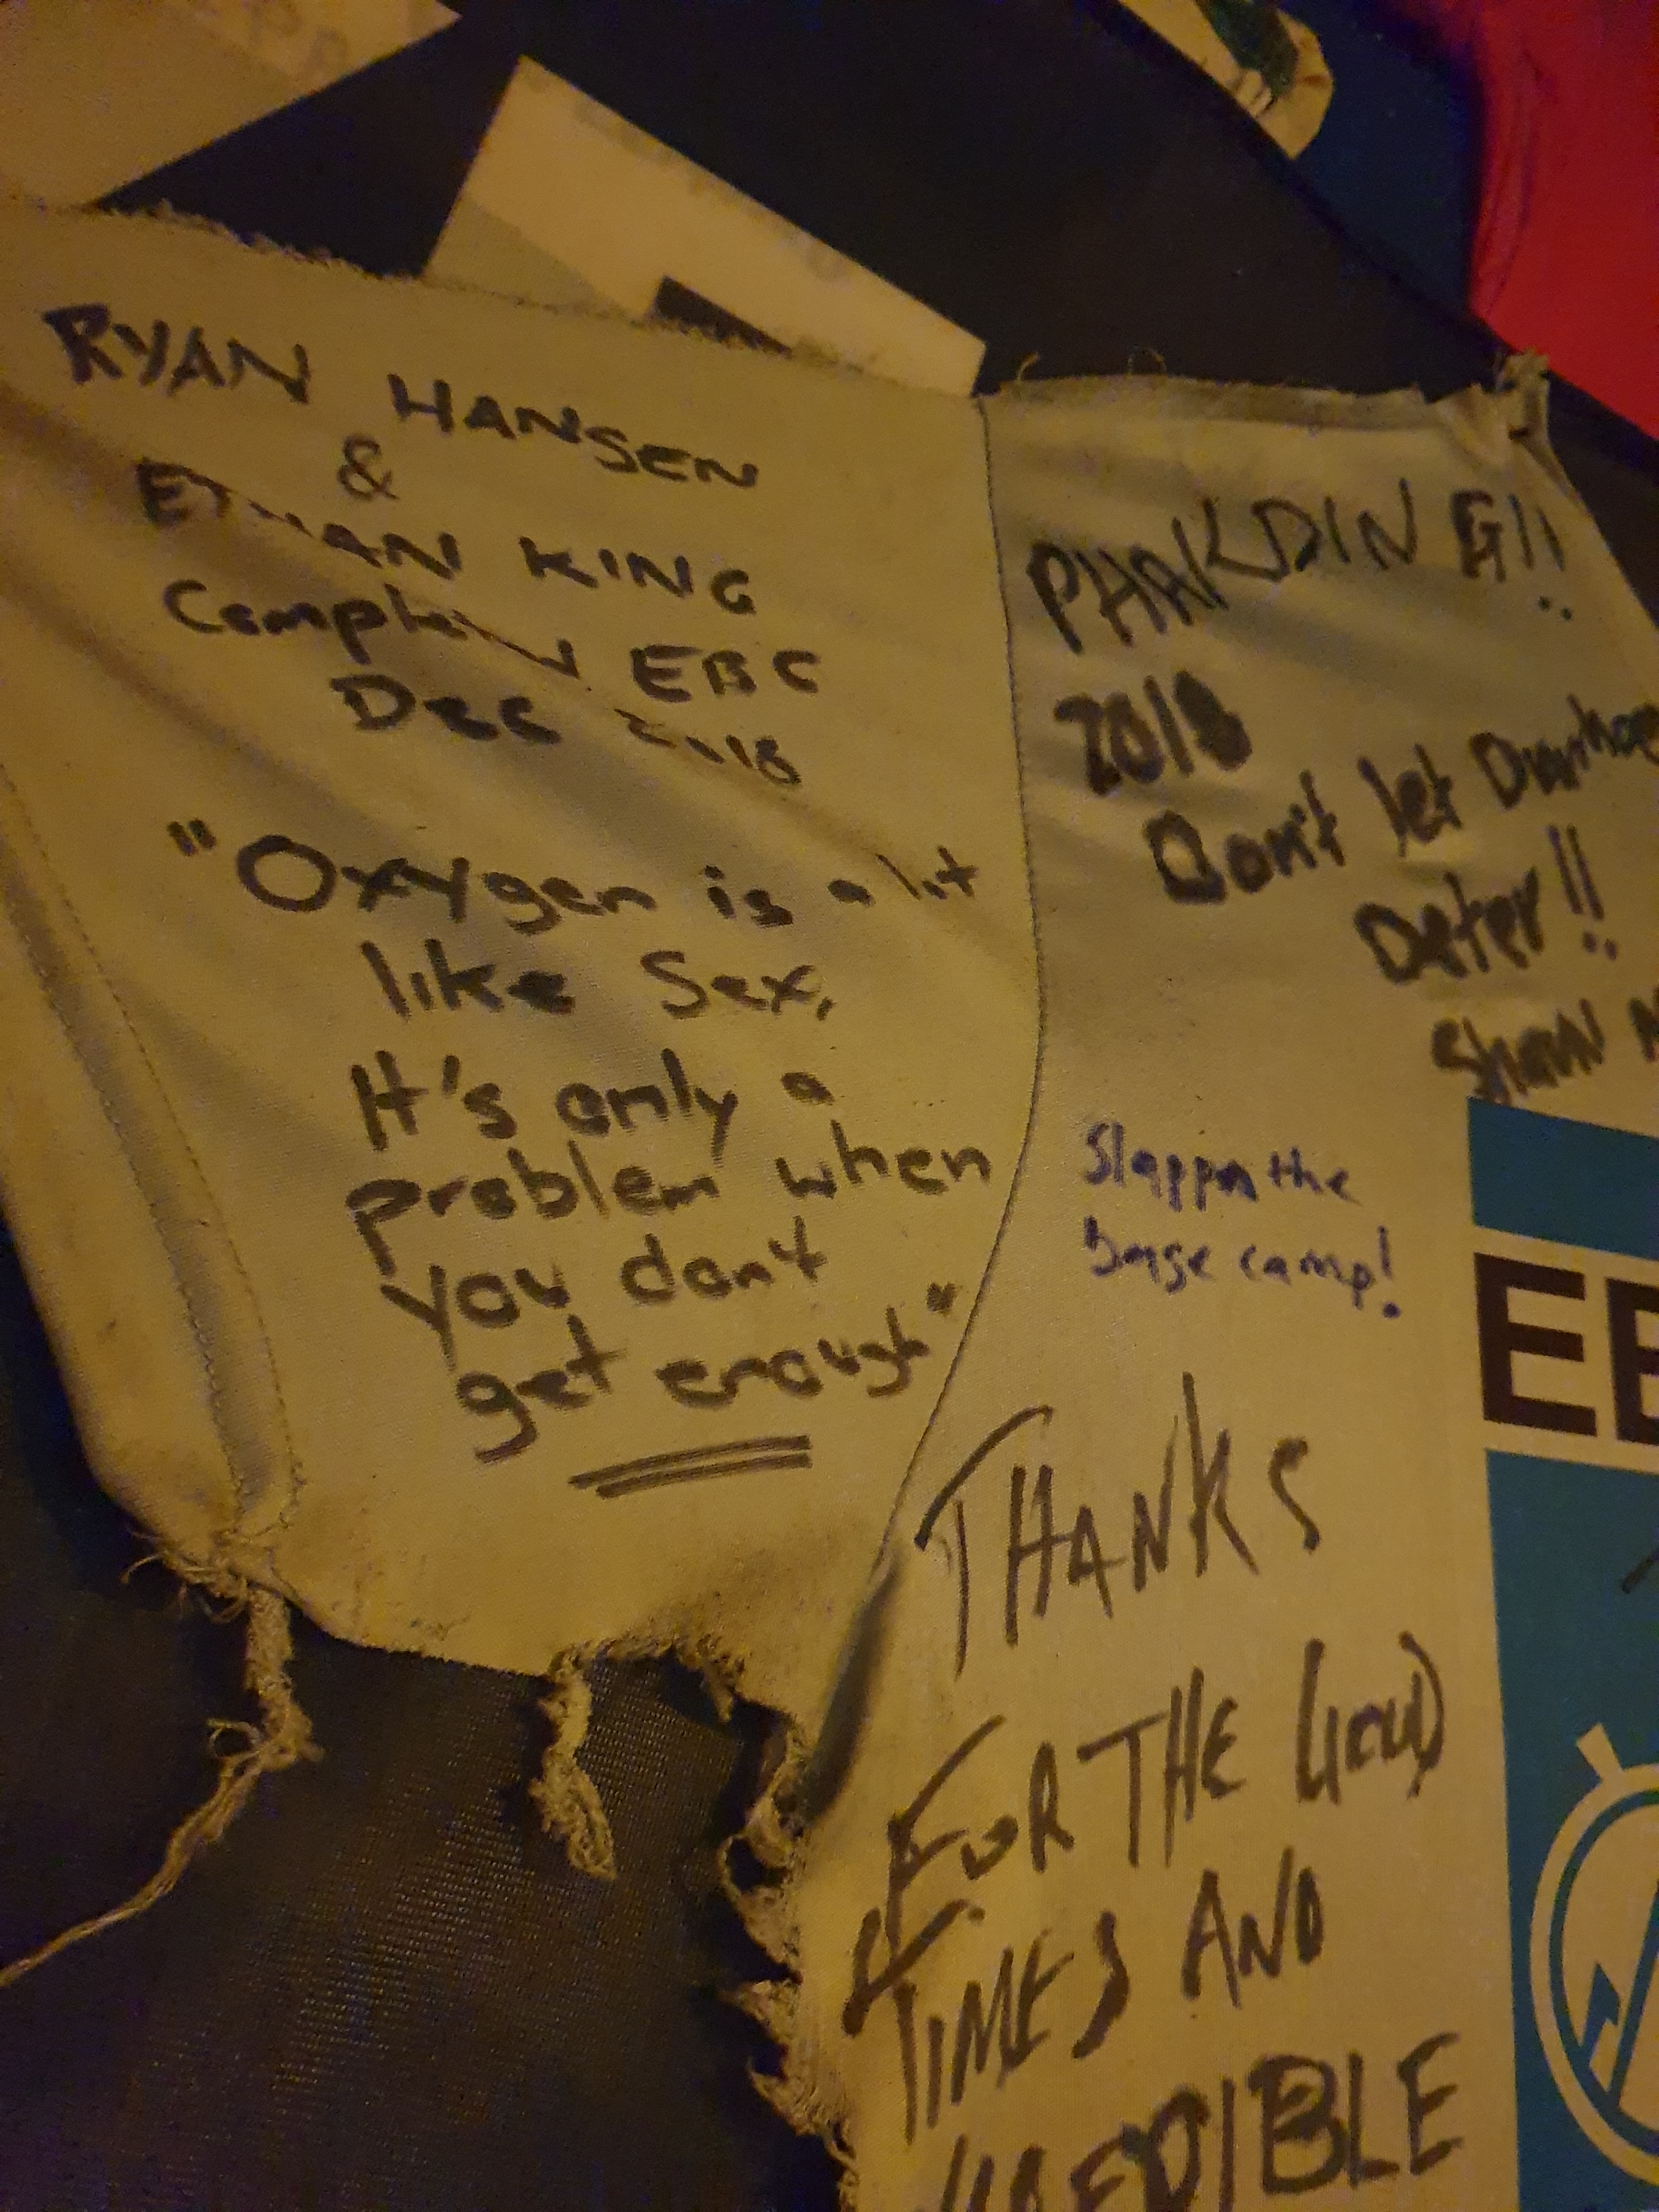 RYAN HANSEN
&
ETHAN KING
EBC
Dec 2018
"Oxygen is a lot
like Sex,
It's only a
problem when
you don't
get enough"
PHAKDING!!
2018
Don't let
Deter!!
Shaun
the
base camp!
THANKS
FOR THE GOOD
TIMES AND